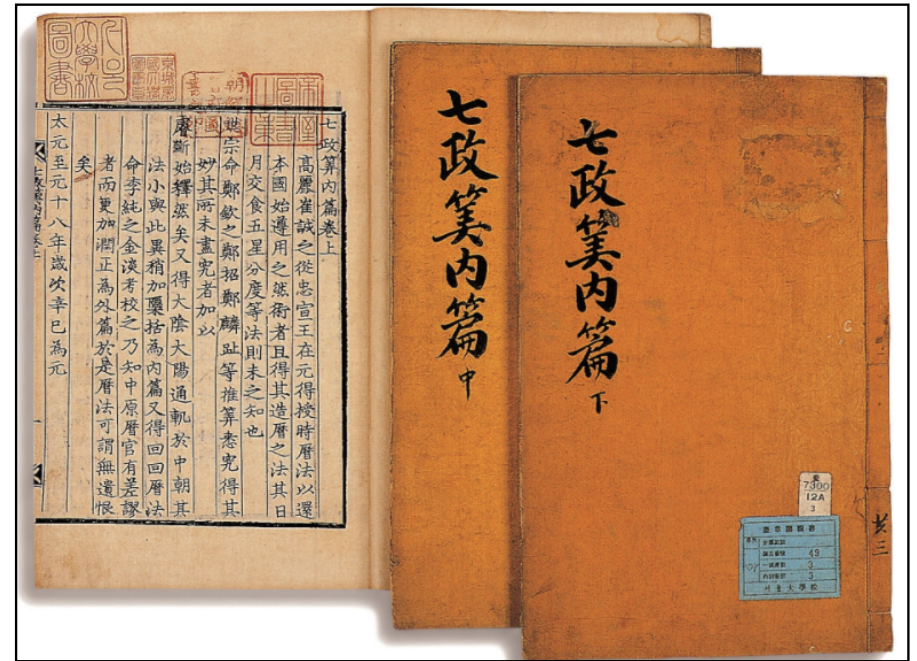 七政算內篇卷上
高麗崔誠之從忠宣王在元得授時曆法以還
本國始遵用之然術者且得其造曆之法其日
月交食五星分度等法則未之知也
世宗命鄭欽之鄭招鄭麟趾等推筭悉究得其
妙其所未盡究者加以
睿斷始釋然矣又得大陰大陽通軌於中朝其
法小與此異稍加櫽括為內篇又得回回曆法
命李純之金淡考校之乃知中原曆官有差謬
者而更加潤正為外篇於是曆法可謂無遺恨
矣
太元至元十八年歲次辛巳為元
七政筭内篇 中
七政筭内篇 下
共三
奎
7300
12A
3
奎章閣圖書
49
3
3
서울大學校